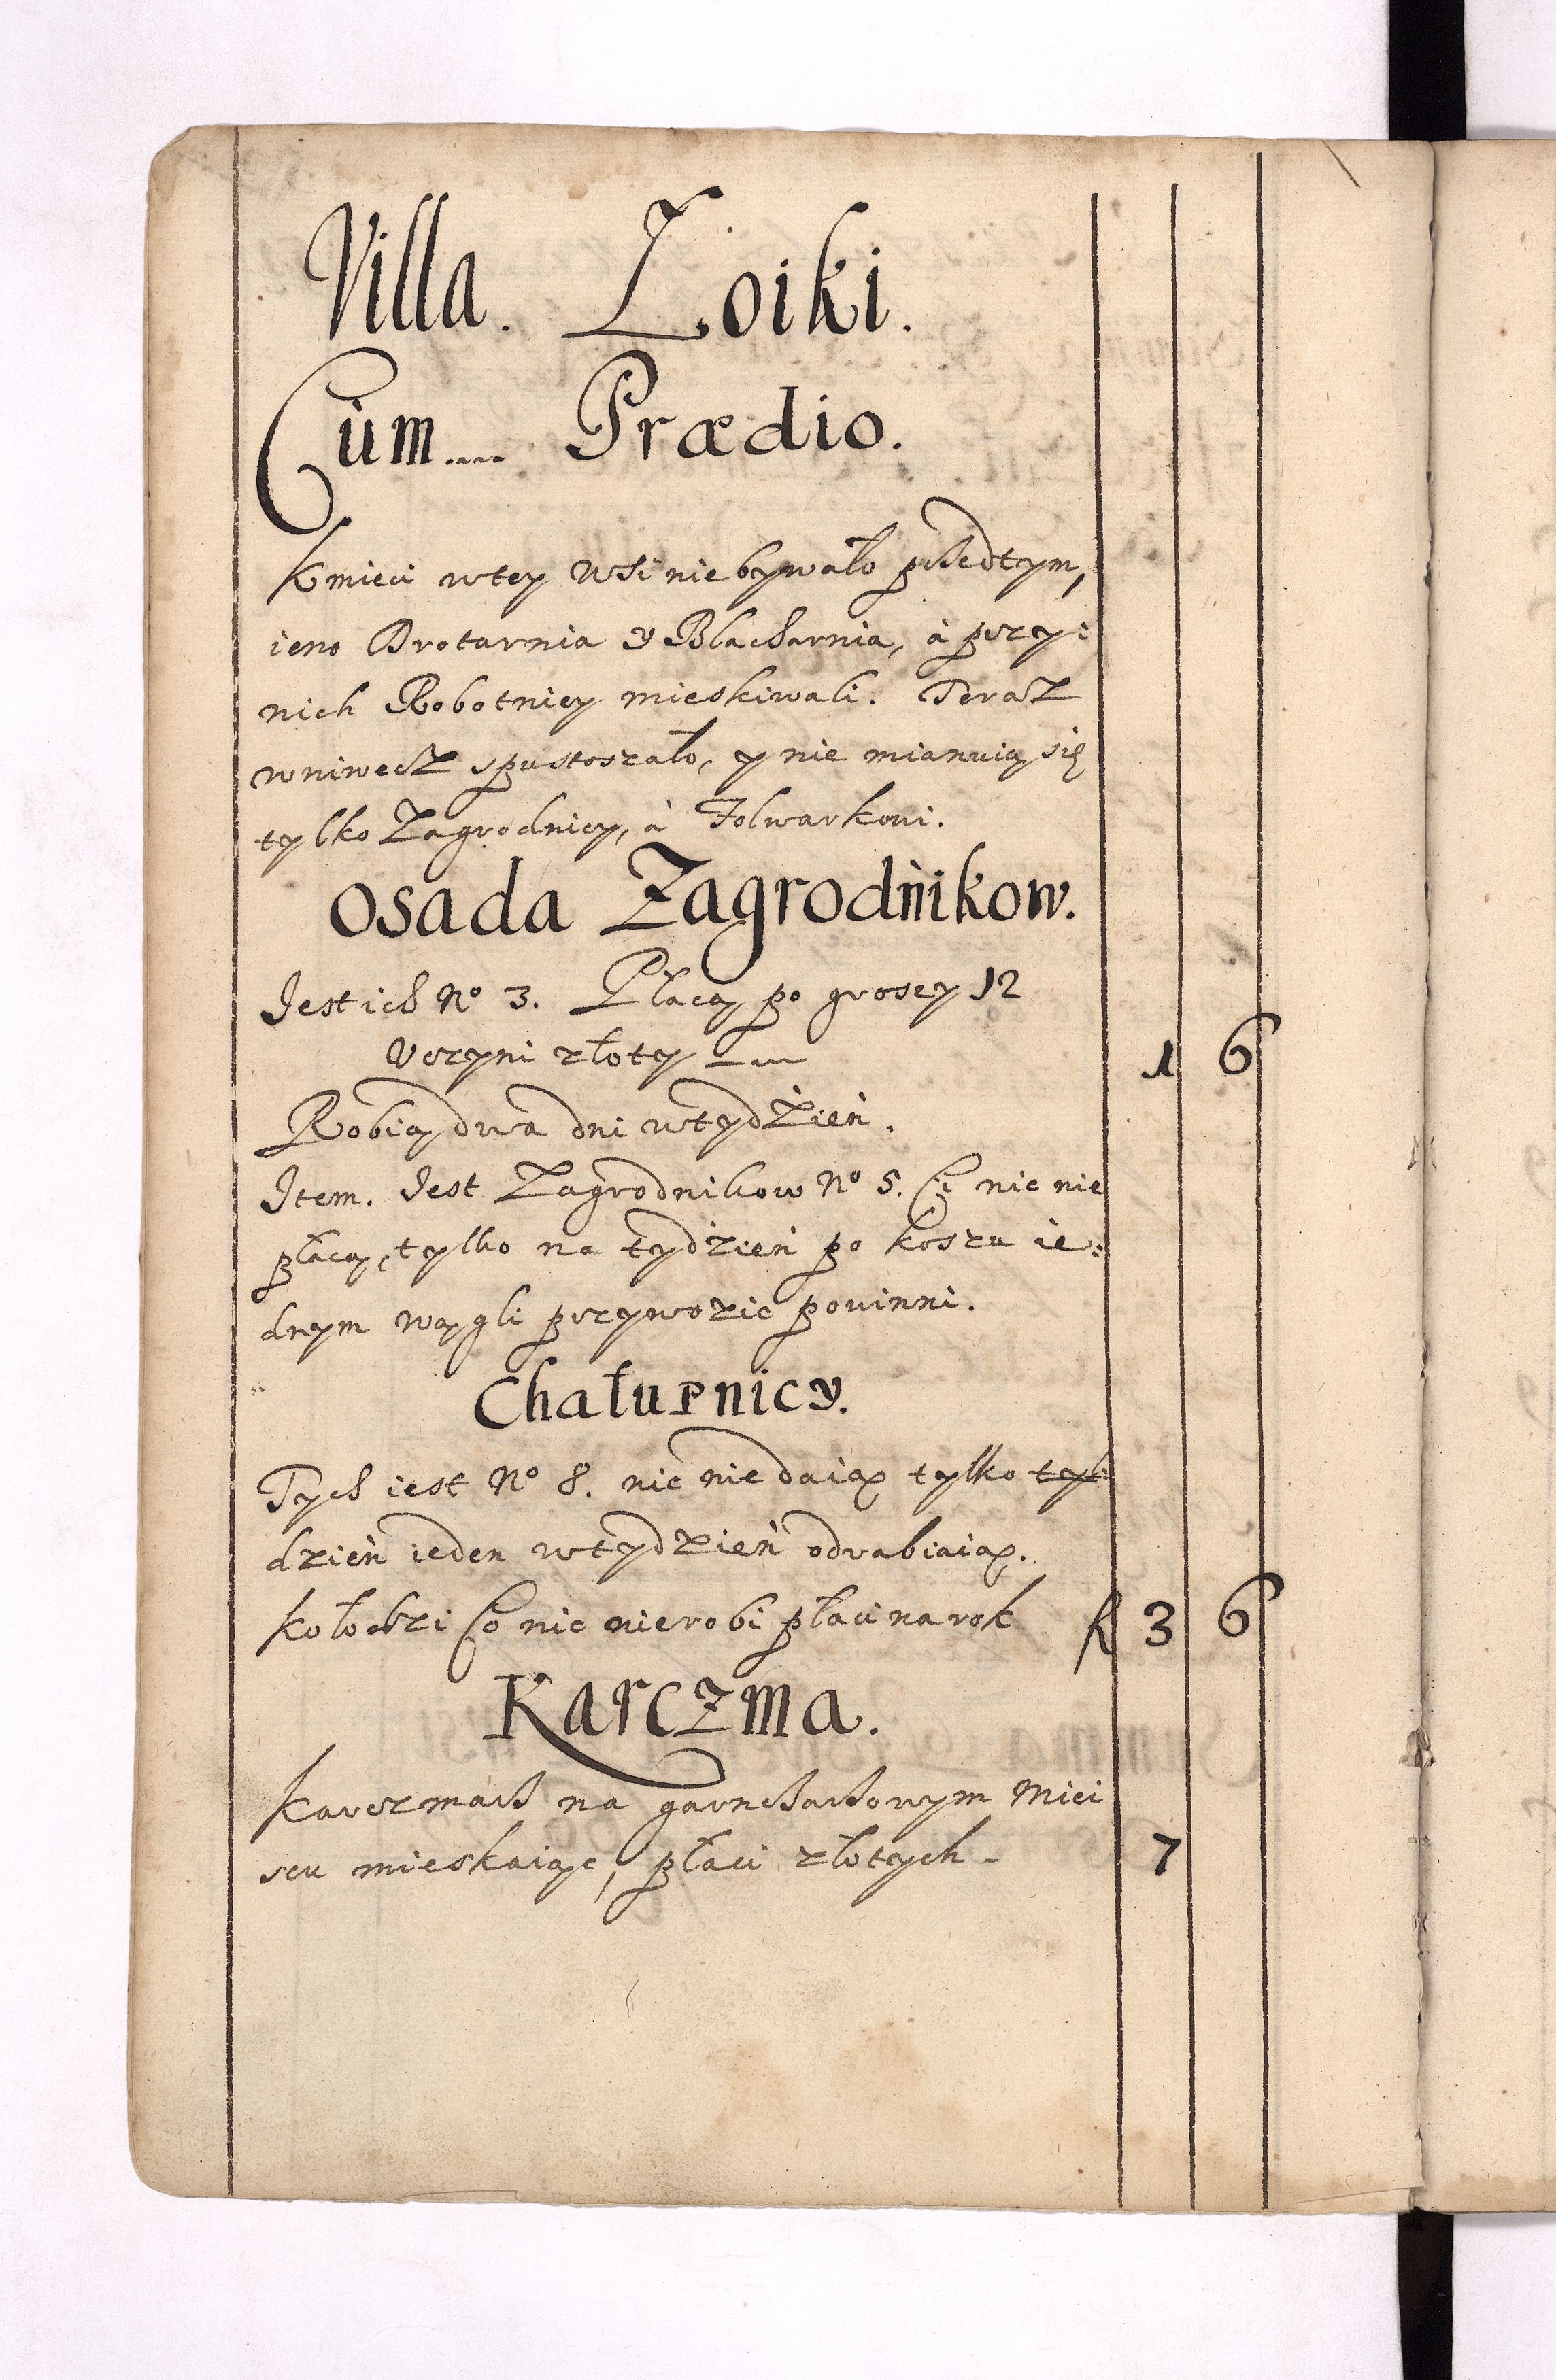 Villa. Łoiki.
Cum.... Prædio.
Kmieci wtey Wsi nie bywało przedtym,
ieno Drotarnia y Blacharnia, à przy:
nich Robotnicy mieskiwali. Teraz
wniwecz spustoszało, y nie mianuią się
tylko Zagrodnicy, à Folwarkowi.
Osada Zagrodnikow.
Jest ich No 3. Płacą po groszy 12
Vczyni złoty 1 6
Robią dwa dni wtydzień.
Item. Jest Zagrodnikow No 5. Ci nic nie
płacą, tylko na tydzień po koszu ie:
dnym wągli przywozic powinni.
Chałupnicy.
Tych iest No 8. nic nie daią tylko tyl:
dzień ieden wtydzień odrabiaią.
Kołodzi Co nic nierobi płaci na rok f 3 6
Karczma.
Karczmarz na garncharzowym Miei
scu mieskaiąc, płaci złotych - 7